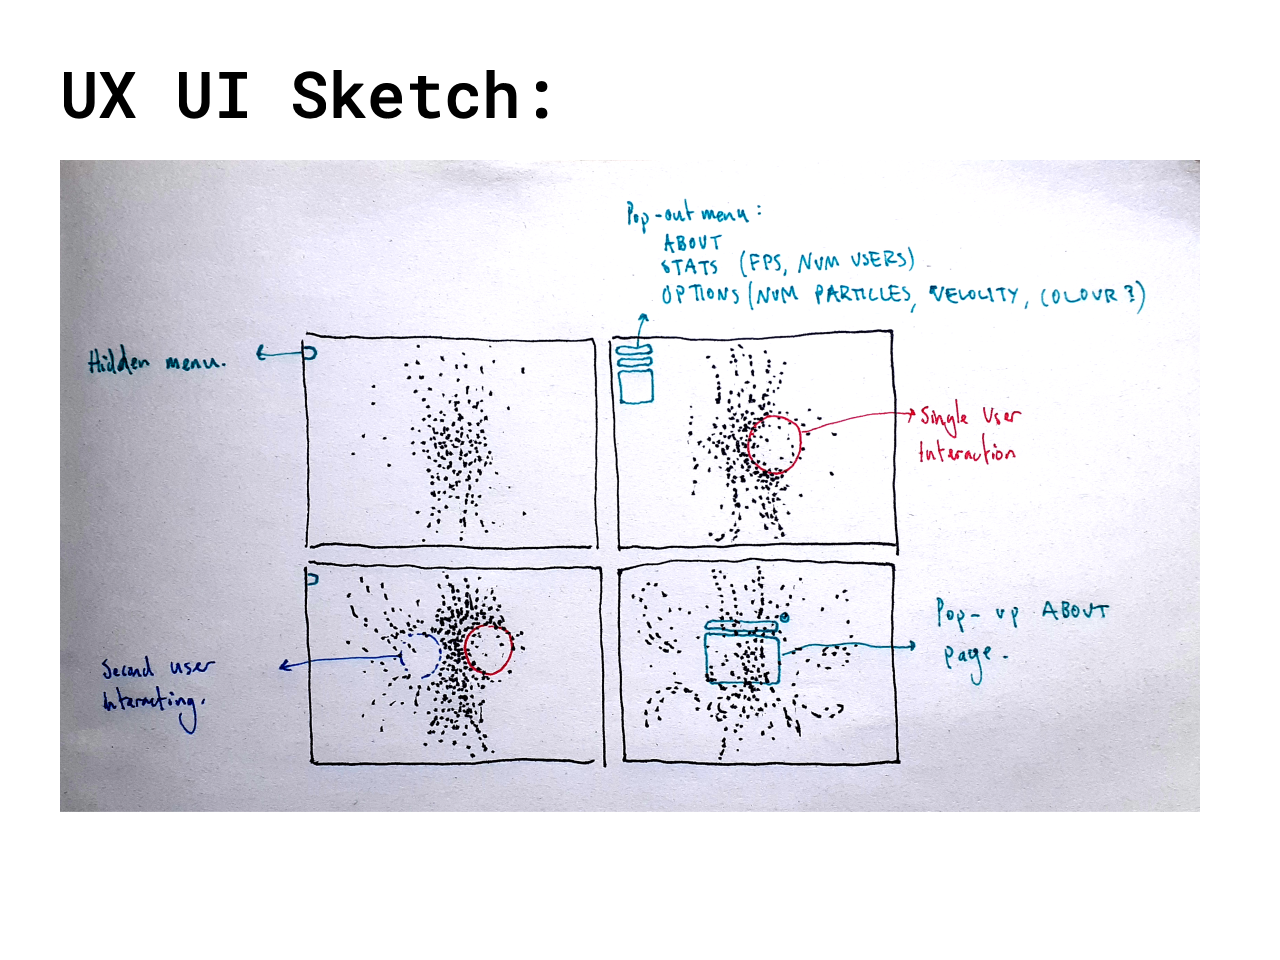 UX UI Sketch:
Pop-out menu:
ABOUT
STATS (FPS, NUM USERS)
OPTIONS (NUM PARTICLES, VELOCITY, COLOUR?)
Hidden menu.
Single User
Interaction
Second user
Interacting.
Pop-up ABOUT
page.